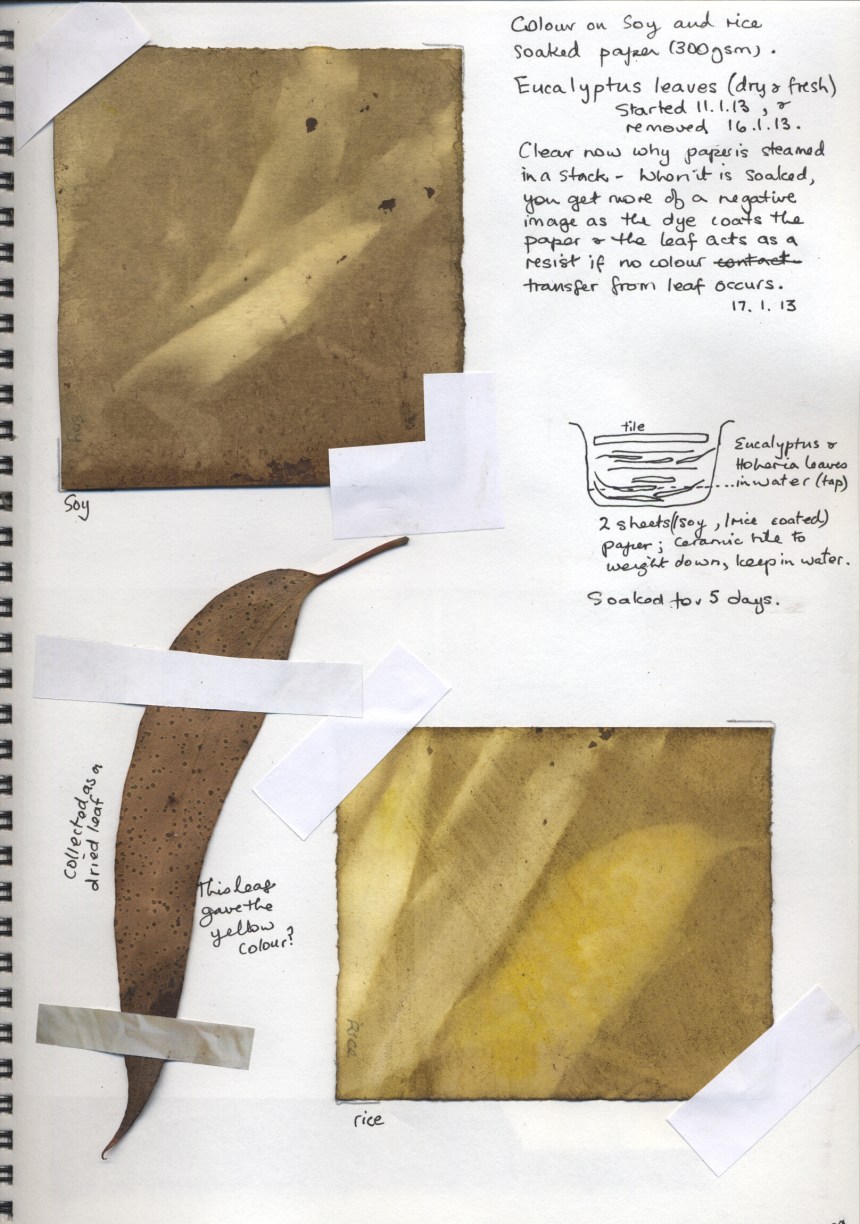 Colour on Soy and rice
soaked paper (300gsm).
Eucalyptus leaves (dry & fresh)
Started 11.1.13, &
removed 16.1.13.
Clear now why paper is steamed
in a stack - when it is soaked,
you get more of a negative
image as the dye coats the
paper & the leaf acts as a
resist if no colour contact
transfer from leaf occurs.
17.1.13
Soy
Soy
tile
Eucalyptus &
Hoheria leaves
in water (tap)
2 sheets (1 soy, 1 rice coated)
paper; ceramic tile to
weight down, keep in water.
Soaked for 5 days.
Collected as a
dried leaf
This leaf
gave the
yellow
colour?
Rice
rice